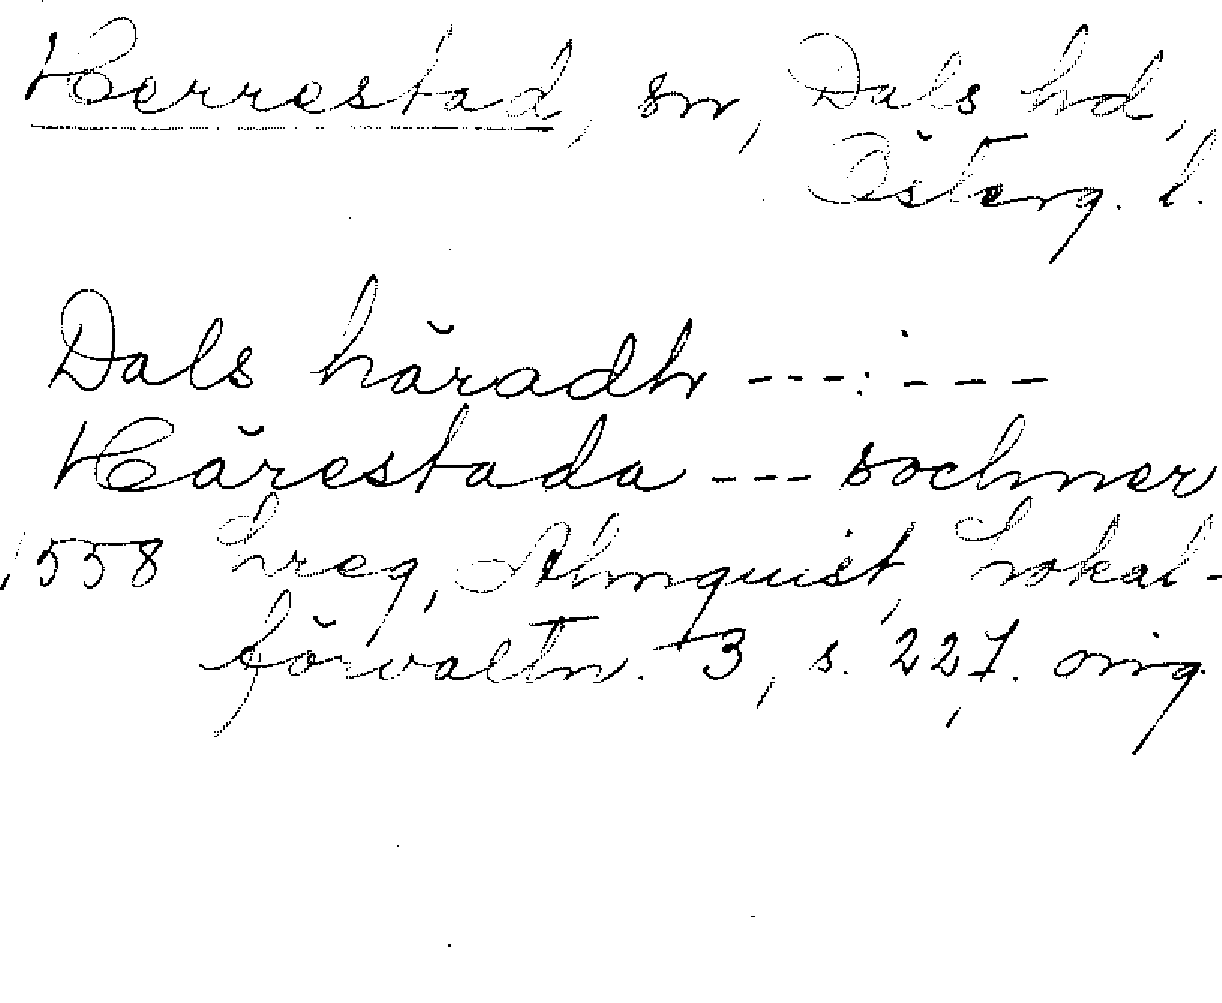 Herrestad, sn, Dals hd,
Österg. l.
Dals häradh ---:---
Härestada --- sochner
1558 Lreg, Almquist, Lokal-
förvaltn. 3, s. 227. orig.